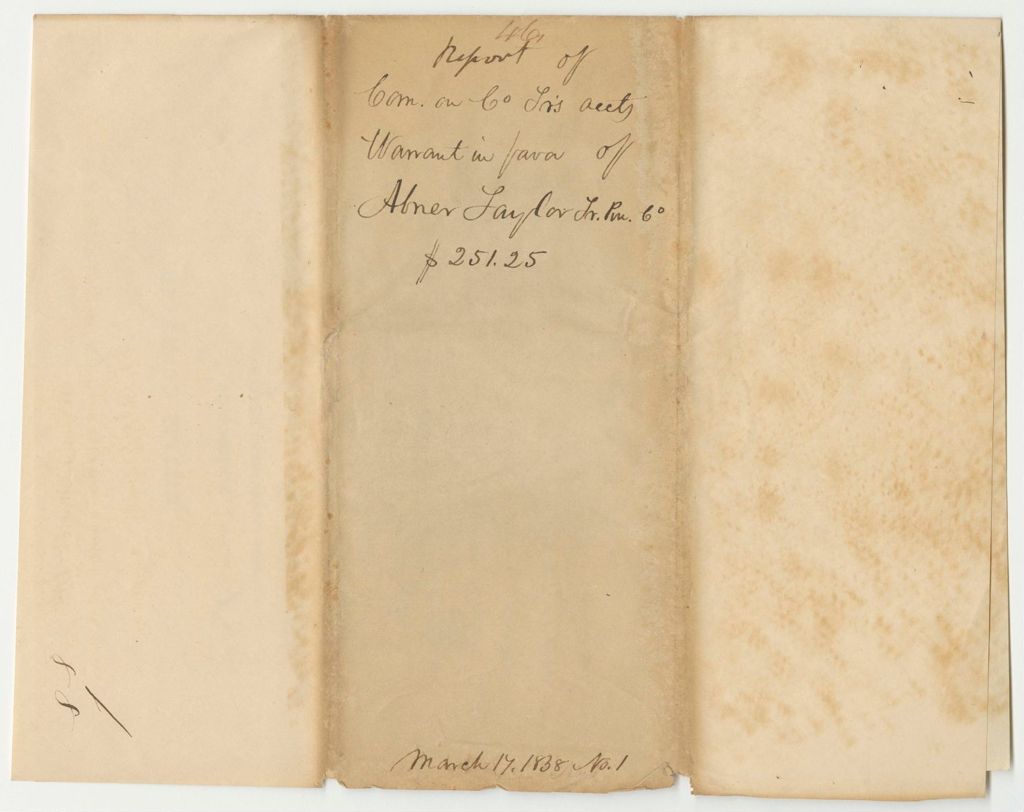 46
Report of
Com. on Co Trs accts
Warrant in favor of
Abner Taylor Tr. Pen. Co
$ 251.25
March 17. 1838 No. 1